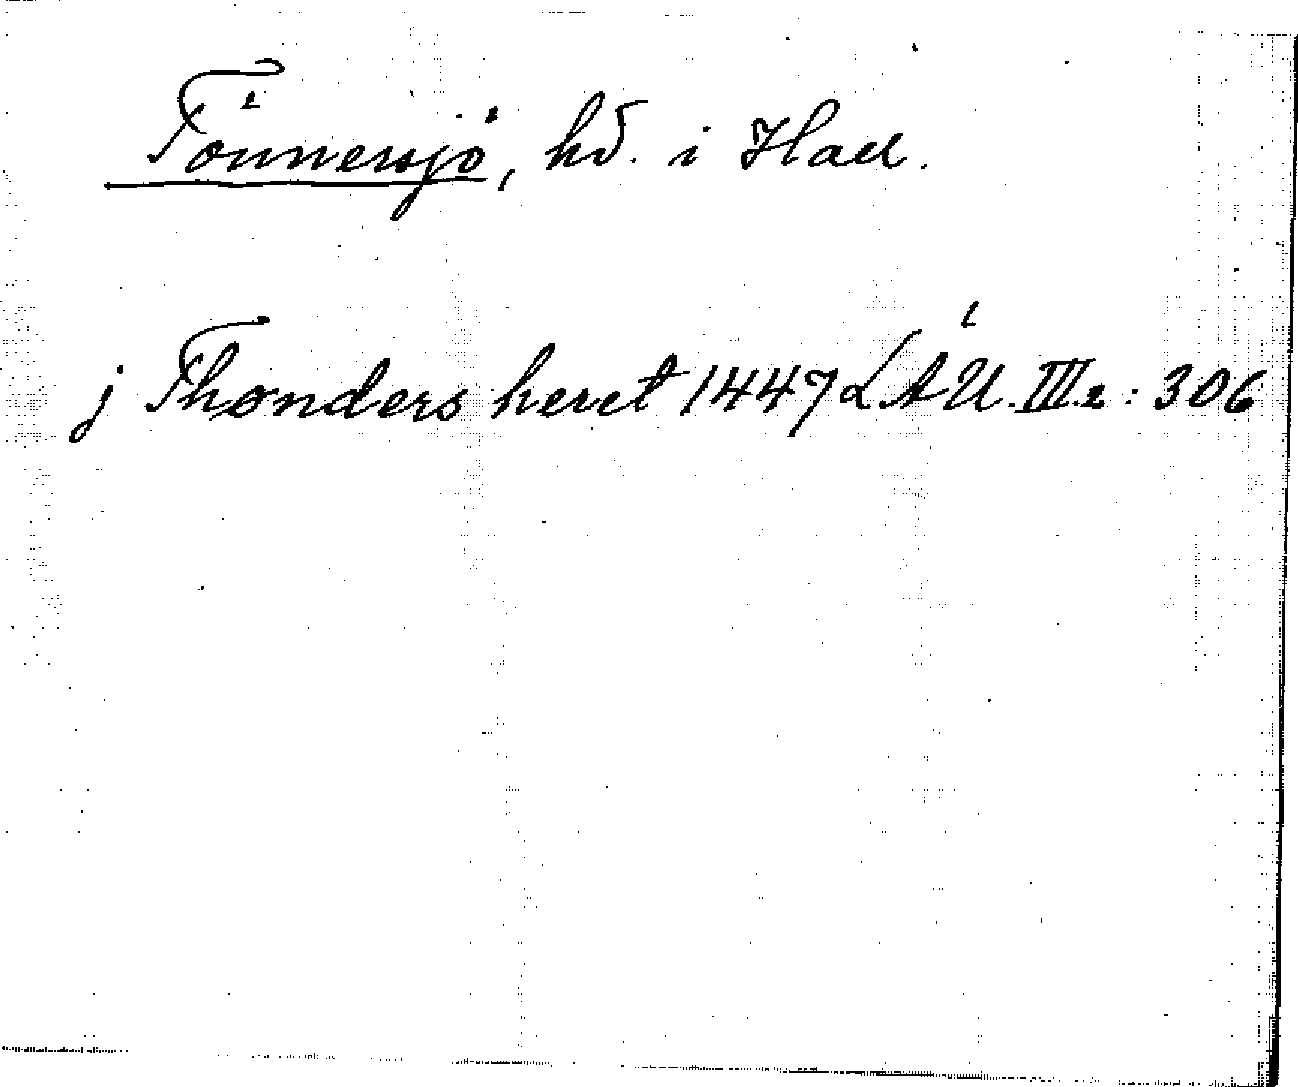 Tönnersjö, hd. i Hall.
j Thonders heret 1447 LÄU. III.2 : 306